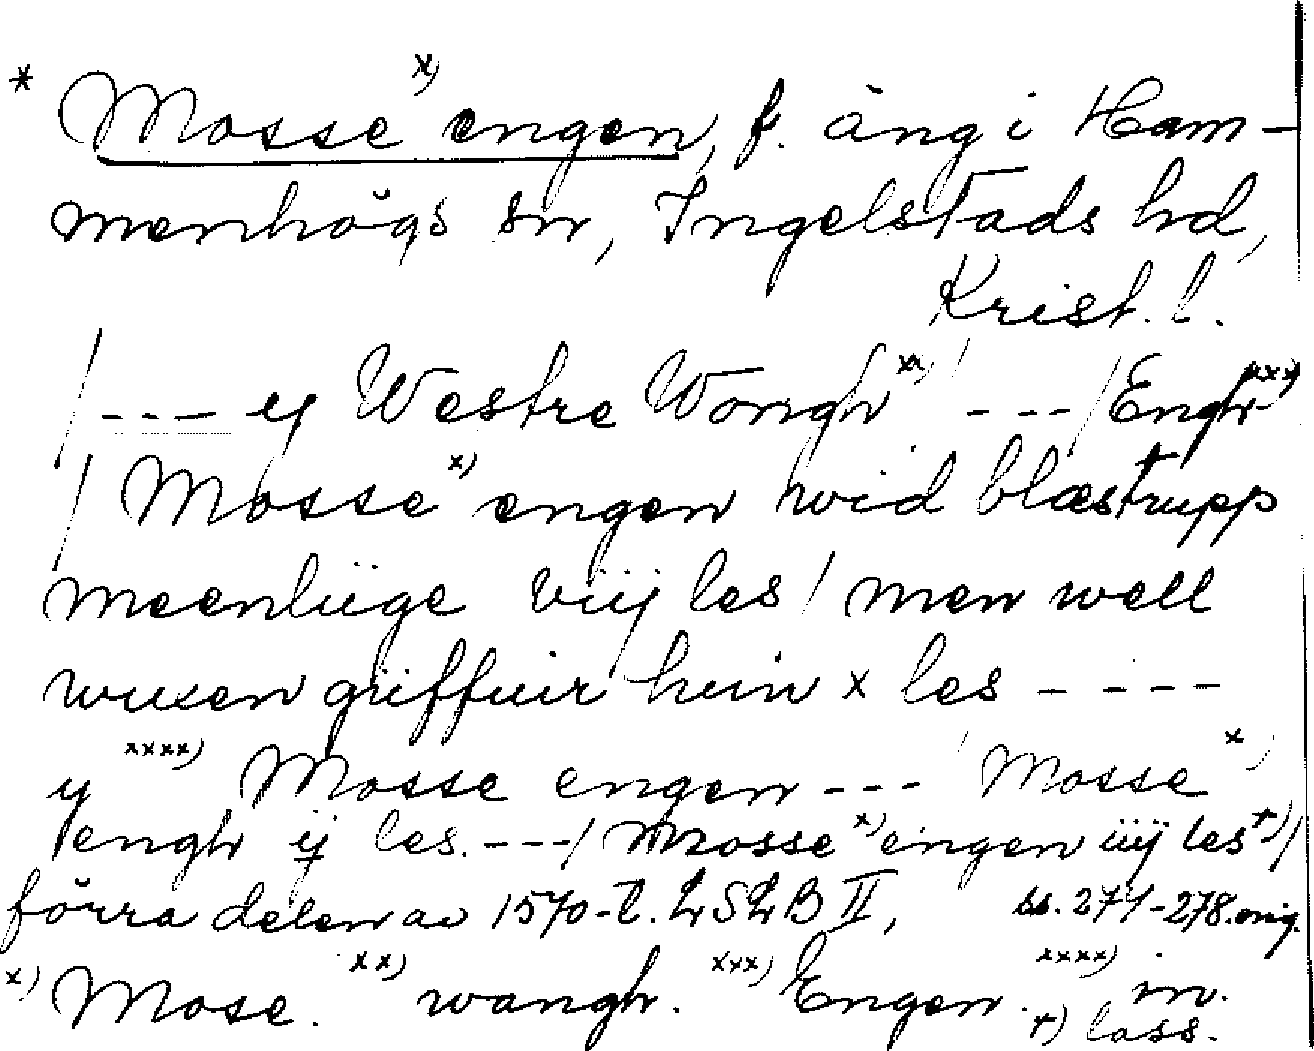 * Mosse x) engen, f. äng i Ham-
menhögs sn, Ingelstads hd,
Krist. l.
/--- y Westre Wongh xx) --- / Engh xxx)
/ Mosse x) engen wid blæstrupp
meenlüge vüij les / men well
wuxen güffuir hun x les ----
y xxxx) Mosse engen --- Mosse x)
engh ij les. ---/ Mosse x) engen iiij les +)/
förra delen av 1570-t. LSLB II, ss. 277-278. orig.
x) Mose. xx) wangh. xxx) Engen. xxxx) in.
+) lass.